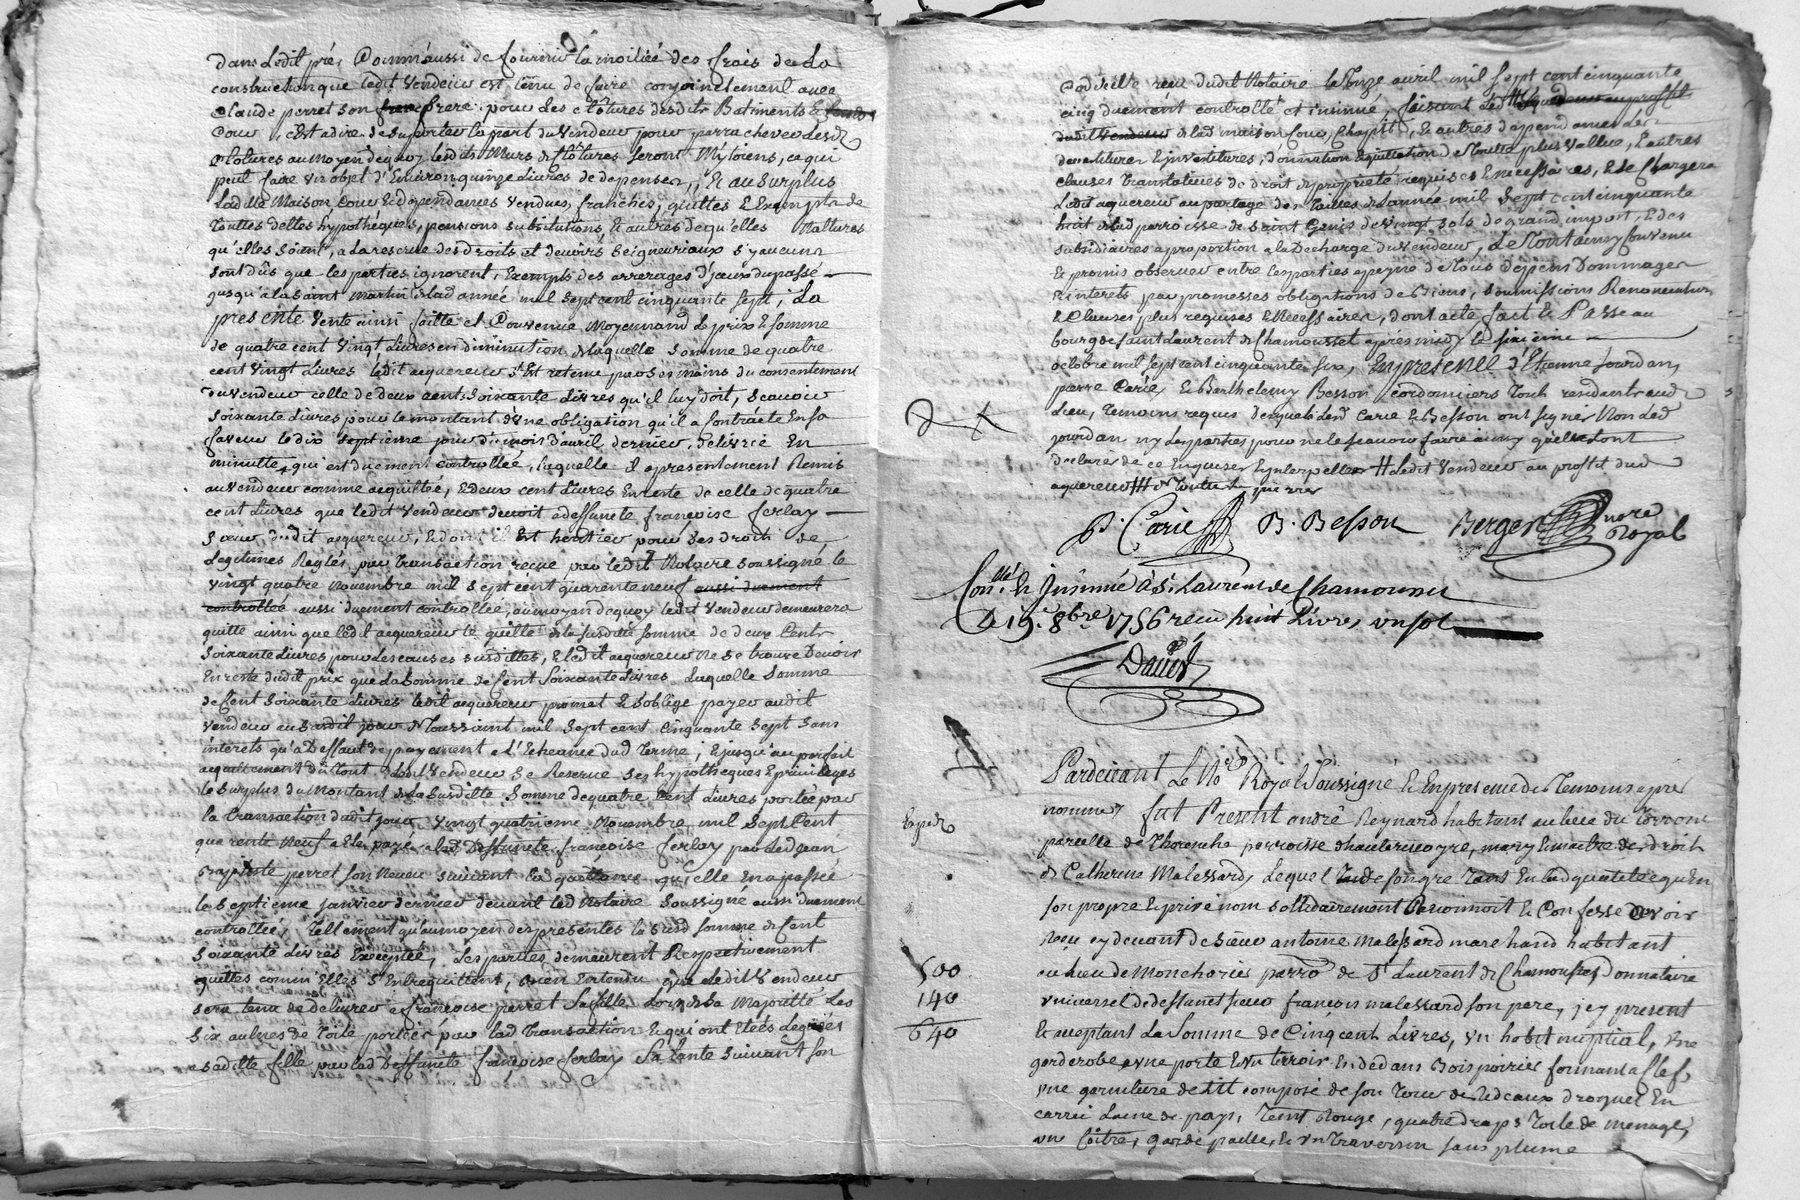 Dans ledit prés Comm'aussi de fournir la moitiée des frais de La
construction que ledit vendeur est tenu de faire conjointement avec
Claude perret son frere pour les clotures desdits Batiments &
Cour, c'est adire de suporter la part du vendeur pour parrachever lesd
Clotures aumoyen dequoy lesdits Murs de Clotures seront Mytoiens, ce qui
peut faire un objet d'Environ quinze Livres de depenses, & au surplus
Lad Maison Cour & dependances vendues, franches, quittes & Exempte de
Touttes dettes hypothéques, pensions substitutions, & autres dequ'elles Nattures
qu'elles soient, a la reserve des droits et devoirs seigneuriaux s'y aucuns
sont dûs que les parties ignorent, Exempts des arrerages d'jceux du passé
jusqu'a la saint Martin de lad année mil sept cent cinquante sept, La
presente vente ainsi faitte et Convenue Moyennand Le prix & somme
de quatre cent vingt Livres en diminution de laquelle somme de quatre
cent vingt Livres ledit acquereur s'Est retenu par ses mains du consentement
du vendeur celle de deux cent soixante Livres qu'il luy doit, scavoir
soixante Livres pour le montant d'une obligation qu'il a Contractée En sa
faveur le dix septieme jour du mois d'avril dernier, delivrée En
minutte, qui est duement controllée, laquelle il a presentement Remis
au vendeur comme acquittée, & deux cent Livres En reste de celle de quatre
cent Livres que ledit vendeur devoit a deffuncte françoise ferlay
sœur dudit acquereur, & dont il Est heritier pour ses droits de
Legitimes Reglés par transaction reçue par ledit Notaire soussigné le
vingt quatre Novembre mil sept cent quarente neuf aussi duement
controllée aussi duement controllée, aumoyen dequoy ledit vendeur demeurera
quitte ainsi que ledit acquereur le quitte de la susditte somme de deux Cents
soixante Livres pour les causes susdittes, & ledit acquereur ne se trouve Devoir
En reste dudit prix que la somme de Cent soixante Livres Laquelle somme
de Cent soixante Livres ledit acquereur promet & s'oblige payer audit
vendeur du jour Toussaint mil sept cent cinquante sept sans
interets qu'a Deffaut de payement a l'Echeance dud terme; & jusqu'au parfait
acquittement du tout ledit vendeur se Reserve ses hypothéques & privileges
le surplus du Montant de la susditte somme de quatre Cent Livres portée par
la transaction dudit jour vingt quatrieme Novembre mil sept Cent
quarente Neuf a Eté payé a lad Deffuncte françoise ferlay par led Jean
Baptiste perret son Neveu suivant la quittance qu'elle En a passée
le septieme janvier dernier devant led Notaire soussigné aussi duement
controllée, tellement qu'aumoyen des presentes la susd somme de Cent
soixante Livres Exceptée, les parties demeurent Respectivement
quittes comm'Elles s'Entrequittent, Bien Entendu que ledit vendeur
sera tenu de delivrer a françoise perret sa fille Lors de sa Majorité Les
six aulnes de toile portées par lad transaction & qui ont Etés Leguées
a saditte fille par lad Deffuncte françoise ferlay sa tante suivant son
Codicille reçu dudit Notaire le onze avril mil sept cent cinquante
cinq duement controllé et insinué, faisant led
dudit vendeur de lad maison, Cour, Chapit, & autres dependances
devestitures & investitures, donnation & quittation de touttes plus vallue, & autres
clauses translatives de droit de proprieté requises & necessaires, & se Chargera
Ledit acquereur au partage des tailles de l'année mil sept cent cinquante
huit de lad parroisse de saint Genis de vingt sols de grand impost, & des
subsidiaires a proportion a la Decharge du vendeur, Le tout ainsy Convenu
& promis observer entre les parties a peyne de tous depens Dommages
& interets, par promesses obligations de Biens, soumissions Renonciations
& Clauses plus requises & necessaires, dont acte fait & Passé au
bourg de saint Laurent de Chamousset, aprés midy le sixieme
octobre mil sept cent cinquante six, En presence d'Etienne jourdan,
pierre Carié, & Barthelemy Besson cordonniers tous residents aud
Lieu, temoins requis desquels led Carié & Besson ont signés Non led
jourdan ny les parties pour ne le scavoir faire ainsy qu'elles ont
declaré de ce Enquises & interpellées # Ledit vendeur au proffit dud
acquereur
P. Carié B. Besson Berger nore
Royal
Conllé & Jnsinué à St Laurent de Chamousset
Le 19e 8bre 1756 reçu huit Livres un sol
David
Pardevant Le Nore Royal soussigné & En presence des temoins apres
nommés fut Present andré Reynard habitant au lieu du
Exped
parcelle de Thorenche parroisse d'hauterivoyre, mary & maitre des droits
de Catherine Malessard, Lequel de son gre tans En lad qualité qu'En
son propre & privé nom sollidairement Reconnoit & Confesse avoir
Reçu cy devant de sieur antoine Malessard marchand habitant
au Lieu de Monchorier parrse de St Laurent de Chamousset, donnataire
universel de deffunct sieur françois malessard son pere, jcy present
500
140
640
& acceptant La somme de Cinq cent Livres, un habit nuptial, une
garderobe a une porte & un tirroir En dedans Bois poirier formant a Clef,
une garniture de Lit composé de son tour de Rideaux droguet En
carré Laine de pays, teint Rouge, quatre draps toile de menage,
un Coître, garde paille, & un traversin sans plume